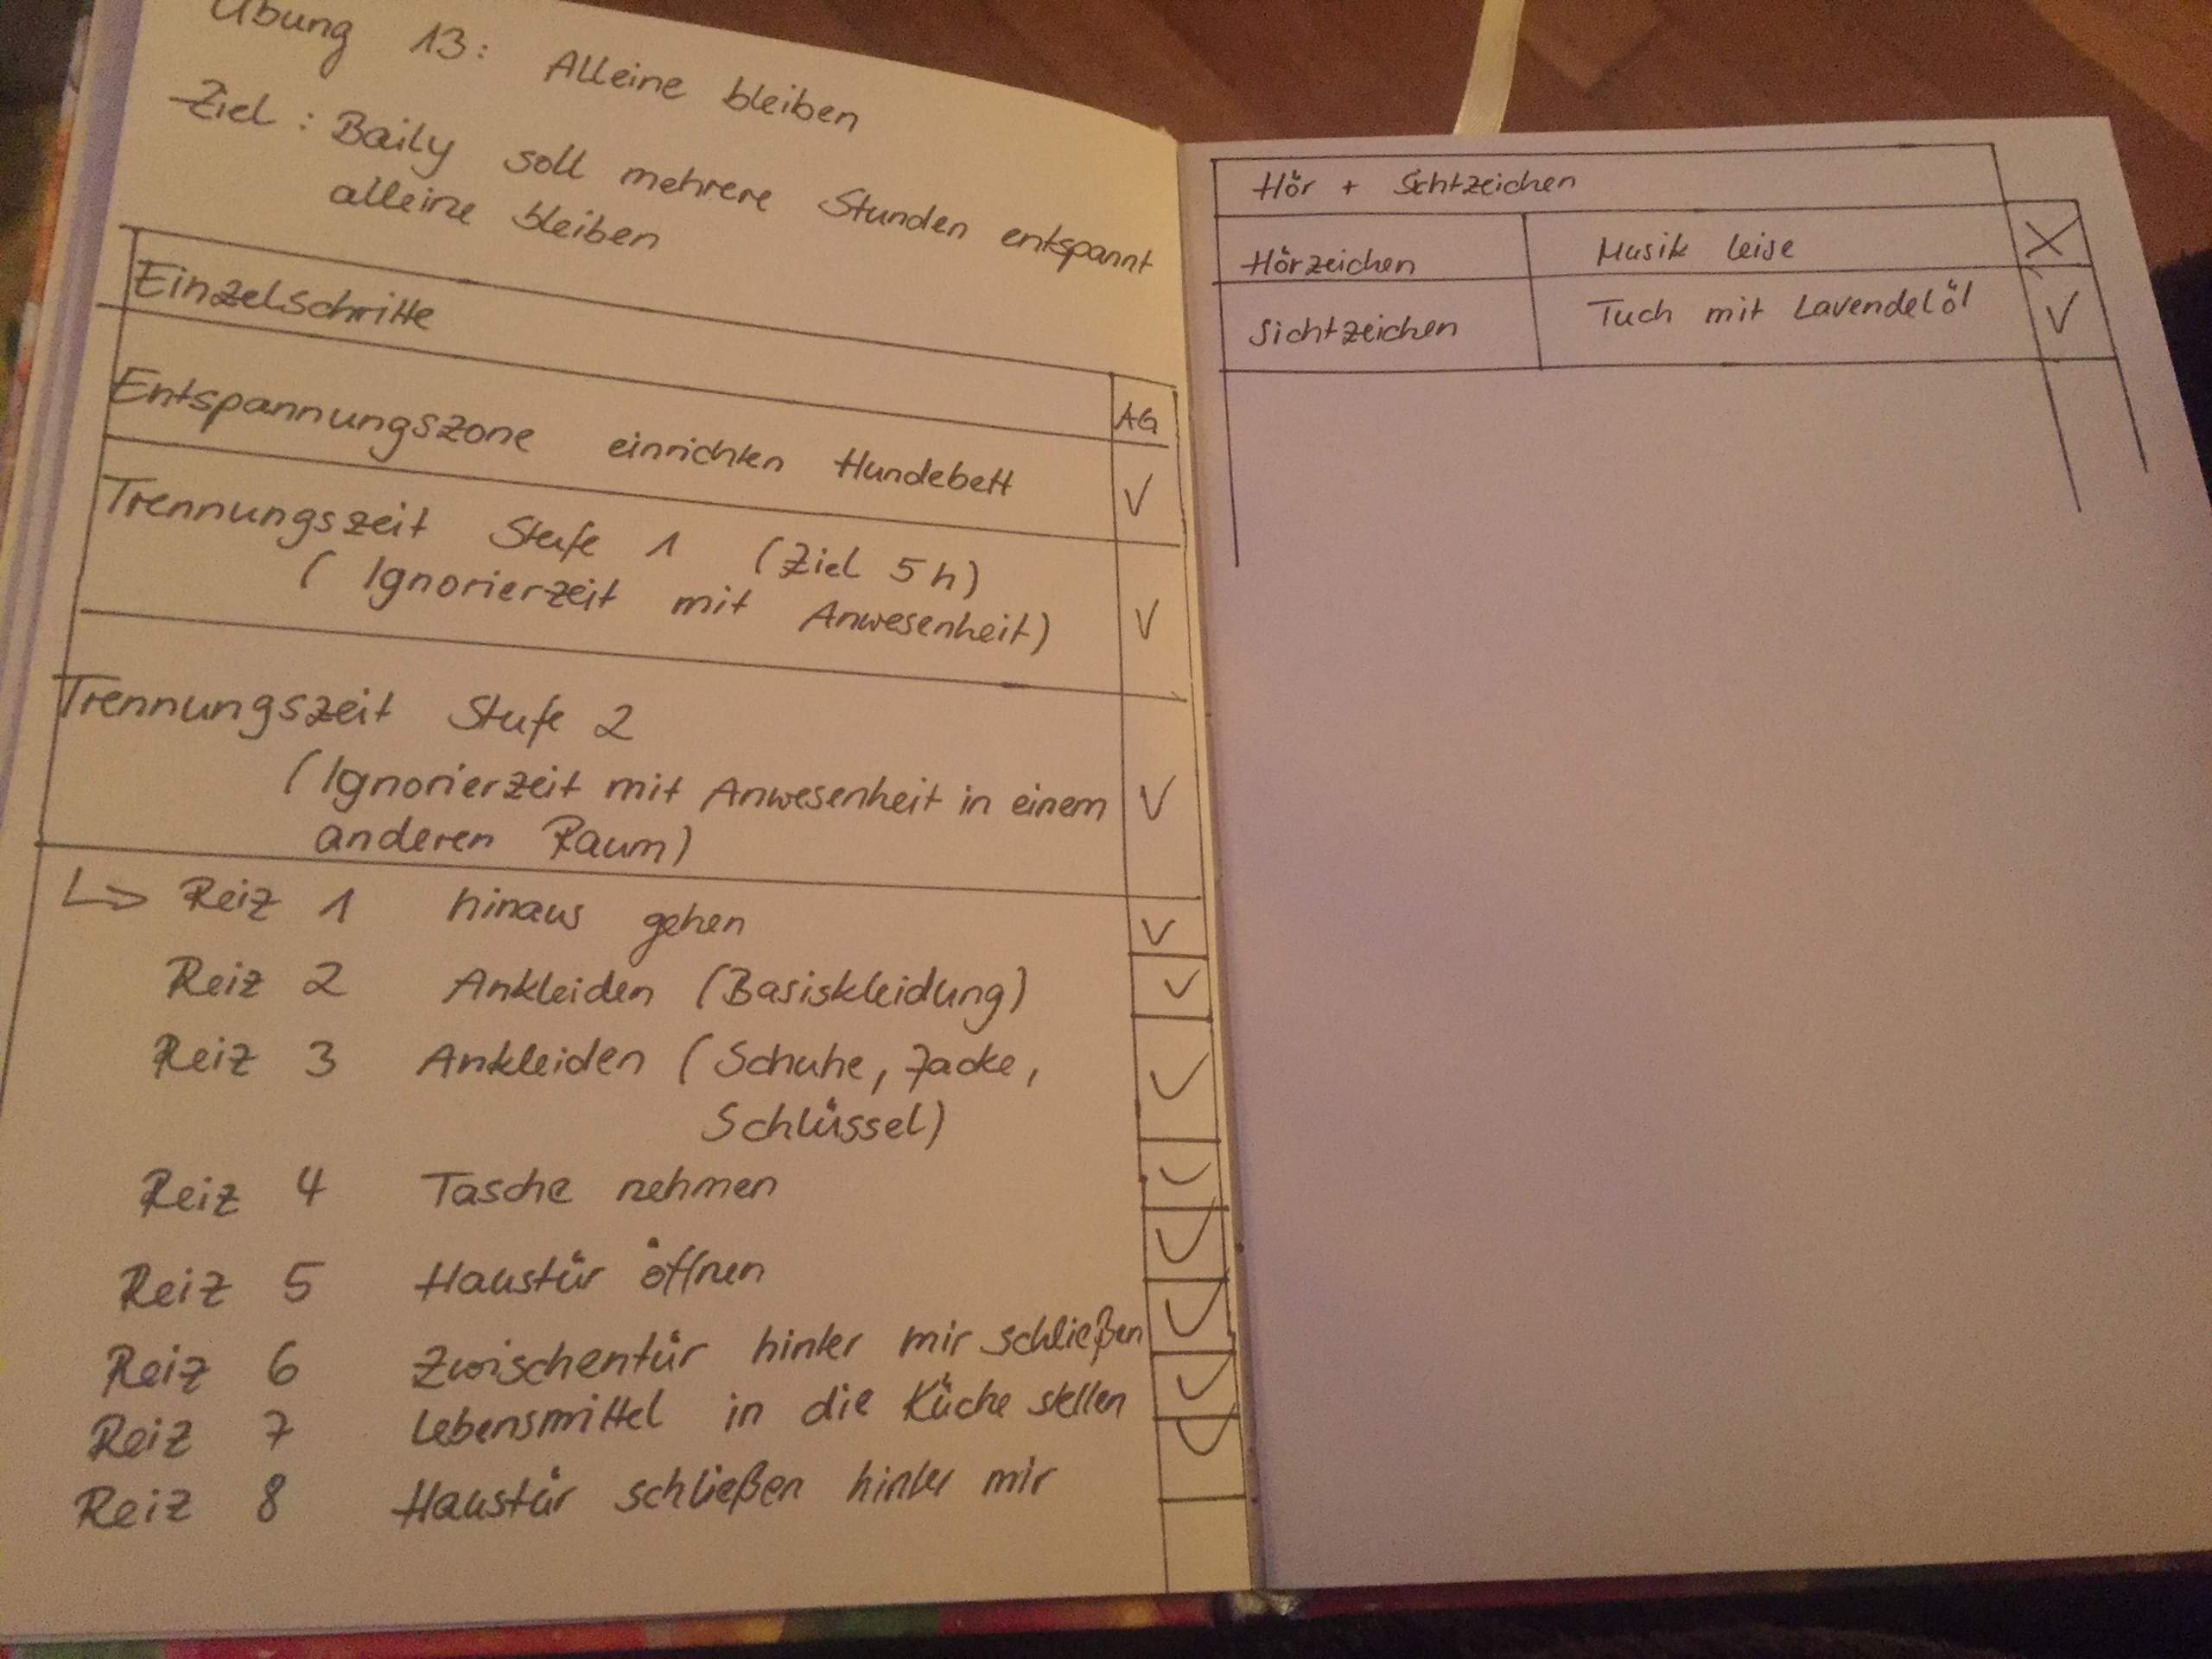 Übung 13: Alleine bleiben
Ziel: Baily soll mehrere Stunden entspannt
alleine bleiben
Einzelschritte
AG
Entspannungszone einrichten Hundebett ✓
Trennungszeit Stufe 1 (Ziel 5h)
(Ignorierzeit mit Anwesenheit) ✓
Trennungszeit Stufe 2
(Ignorierzeit mit Anwesenheit in einem ✓
anderen Raum)
↳ Reiz 1 hinaus gehen ✓
Reiz 2 Ankleiden (Basiskleidung) ✓
Reiz 3 Ankleiden (Schuhe, Jacke, ✓
Schlüssel)
Reiz 4 Tasche nehmen ✓
Reiz 5 Haustür öffnen ✓
Reiz 6 Zwischentür hinter mir schließen ✓
Reiz 7 Lebensmittel in die Küche stellen ✓
Reiz 8 Haustür schließen hinter mir ✓
Hör + Sichtzeichen
Hörzeichen Musik leise X
Sichtzeichen Tuch mit Lavendelöl ✓